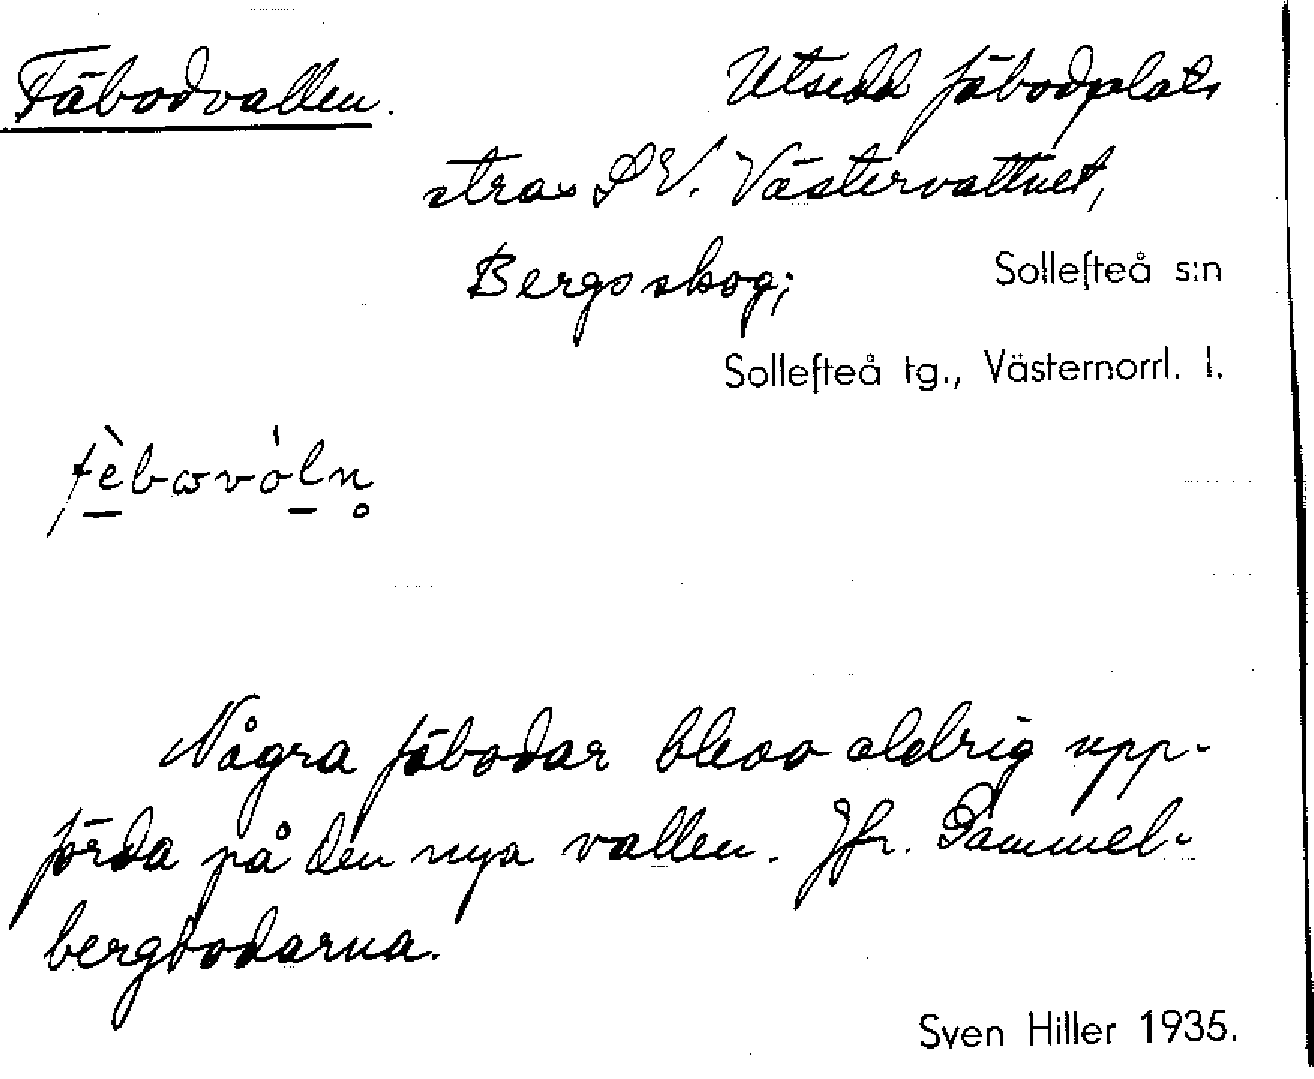 Fäbodvallen. Utsedd fäbodplats
strax SV. Västervattnet,
Bergsskog; Sollefteå s:n
Sollefteå tg., Västernorrl. l.
Några fäbodar blevo aldrig upp-
förda på den nya vallen. Jfr. Gammel-
bergbodarna.
Sven Hiller 1935.